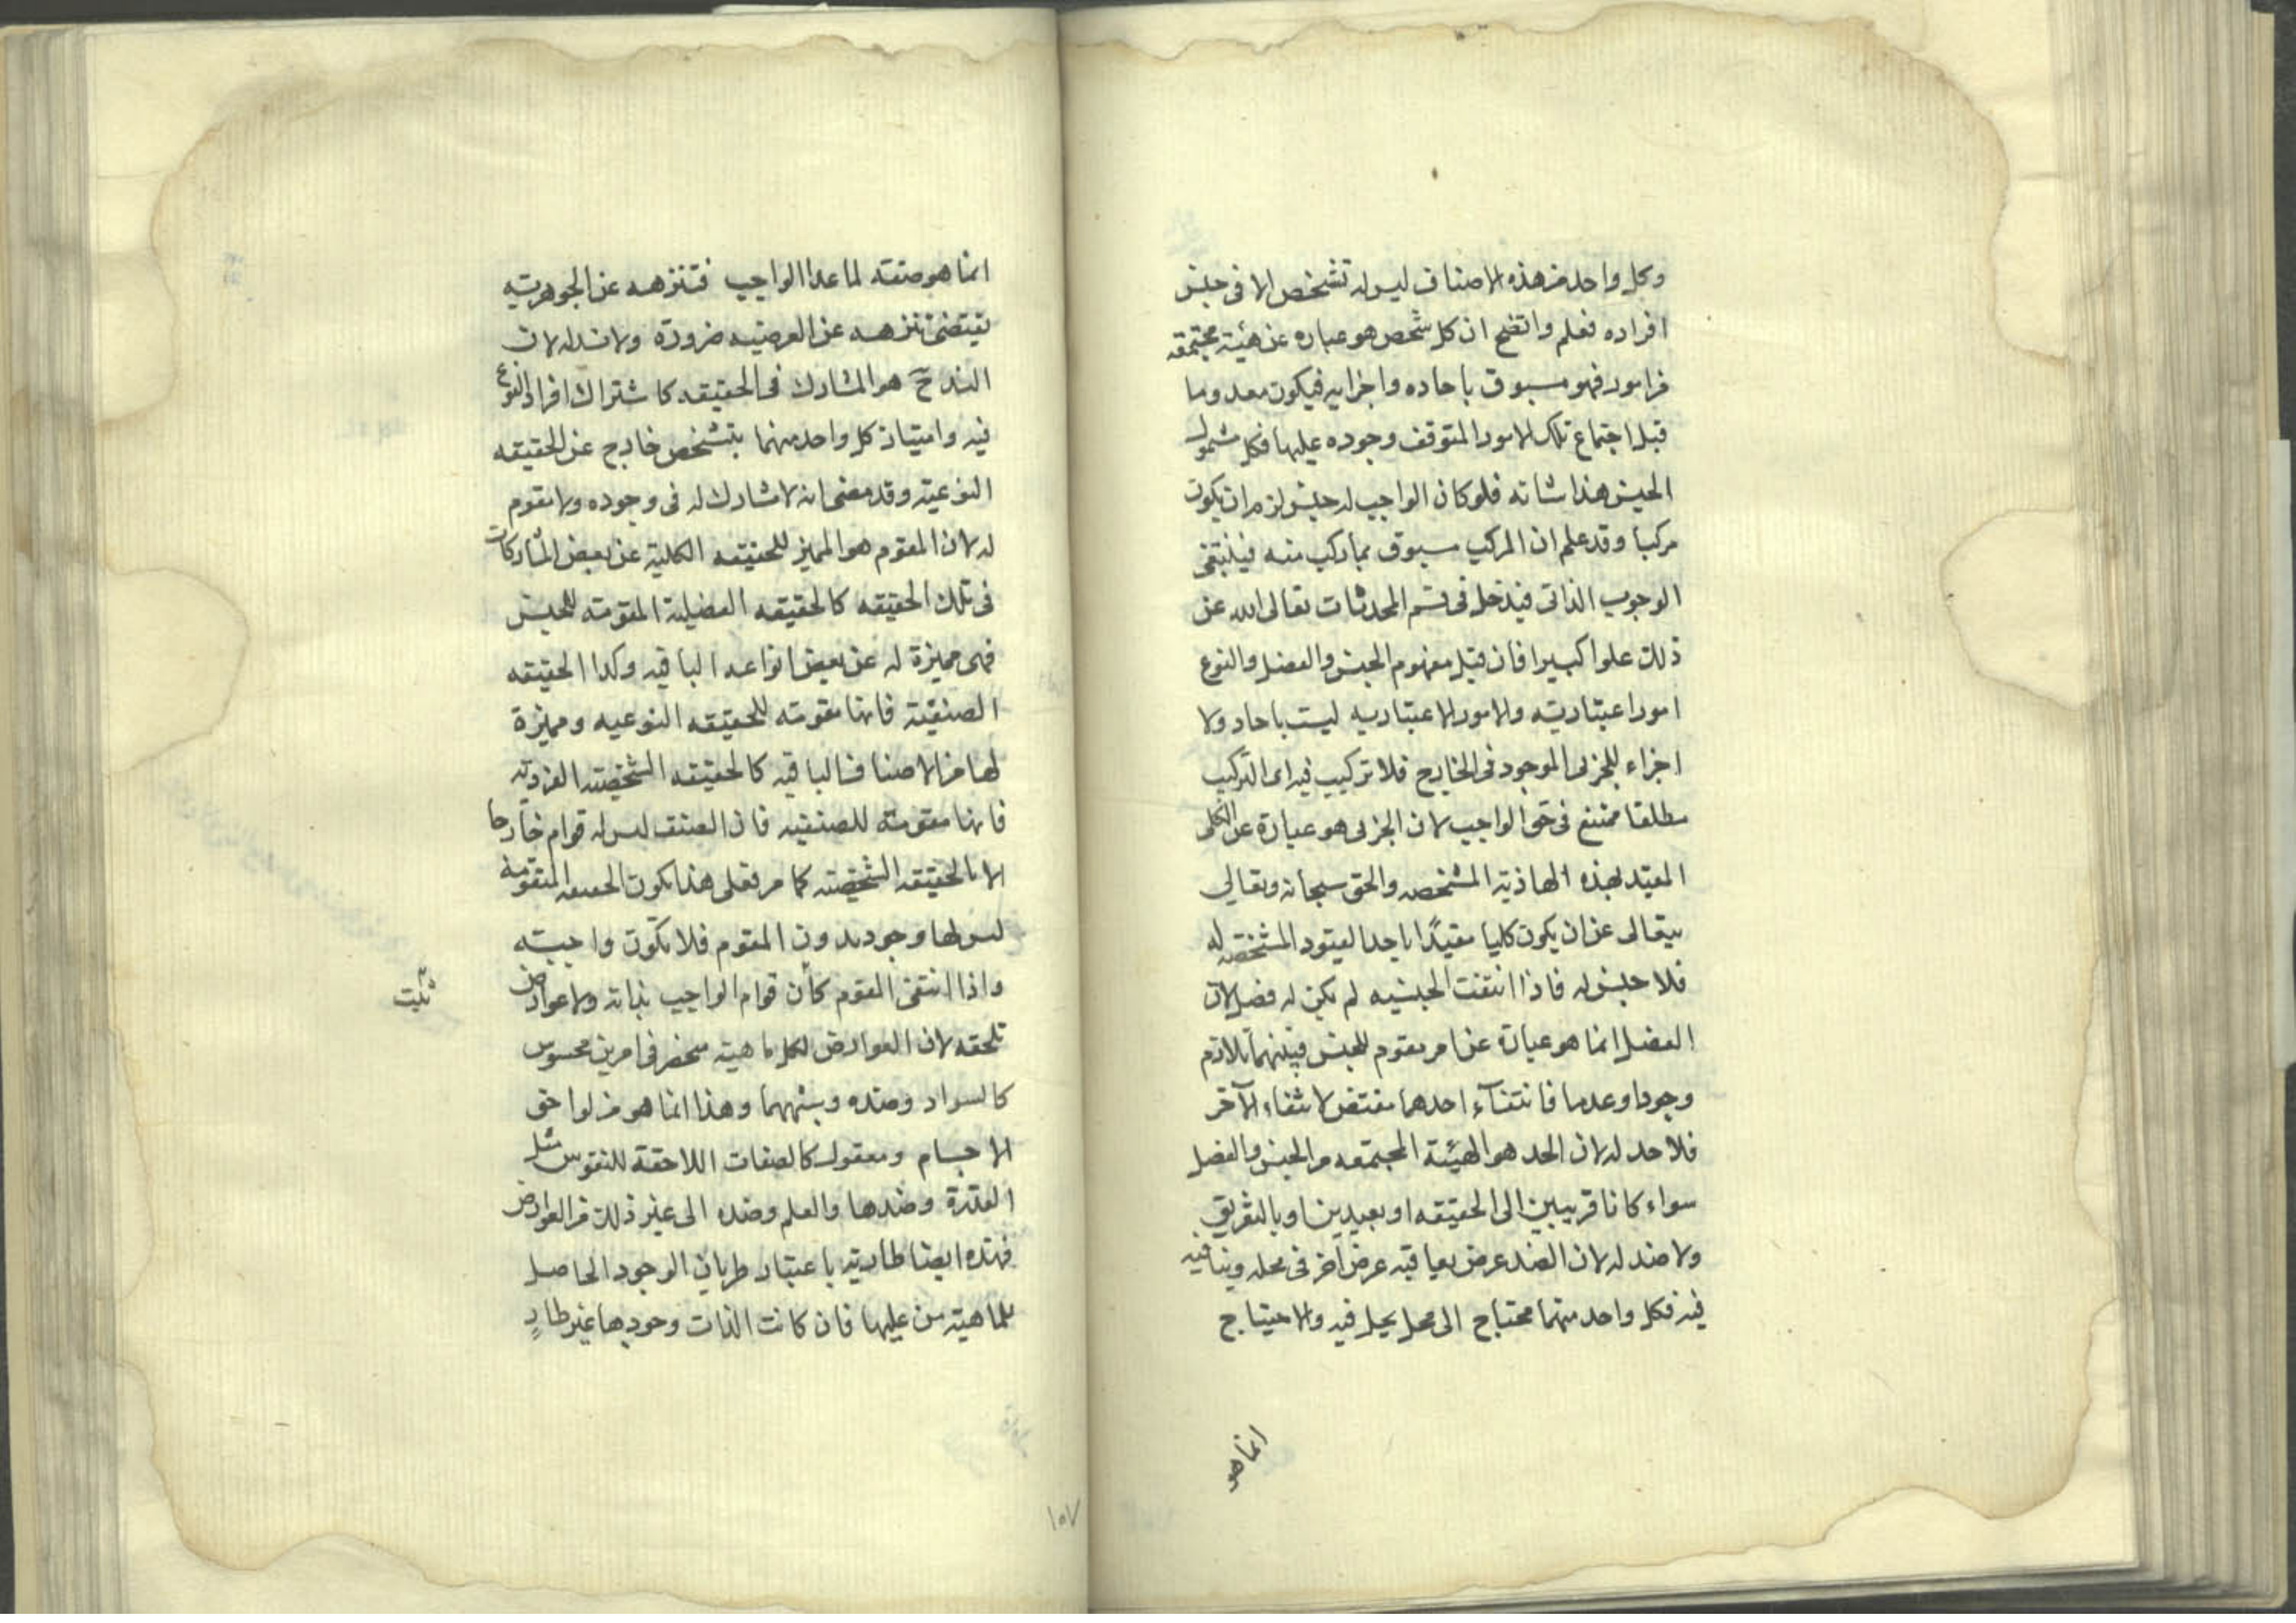 وكل واحد من هذه الاصناف ليس له تشخص الا فى جنس
افراده فعلم واتضح ان كل شخص هو عباره عن هيئة مجتمعه
من امور فهو مسبوق باحاده واجزايه فيكون معدوما
قبل اجتماع تلك الامور المتوقف وجوده عليها فكل شمول
الجنس هذا شانه فلو كان الواجب له جنس لزم ان يكون
مركبا وقد علم ان المركب مسبوق بما ركب منه فينتفى
الوجوب الذاتى فيدخل فى قسم المحدثات تعالى الله عن
ذلك علوا كبيرا فان قيل مفهوم الجنس والفصل والنوع
امورا عتبارية والامور الاعتباريه ليست باحاد ولا
اجزاء للجزئى الموجود فى الخارج فلا تركيب فيه اى التركيب
مطلقا ممتنع فى حق الواجب لان الجزئى هو عبارة عن الكلى
المقيد بهذه الهاذية المشخصه والحق سبحانه وتعالى
يتعالى عن ان يكون كليا مقيدًا باحد القيود المشخصه له
فلا جنس له فاذا انتفت الجنسيه لم يكن له فصل لان
الفصل انما هو عبارة عن امر مقوم للجنس فبينهما تلازم
وجودا وعدما فانتفآء احدهما مقتض لانتفاء الآخر
فلا حد له لان الحد هو الهيئة المجتمعه من الجنس والفصل
سواء كانا قريبين الى الحقيقه او بعيدين او بالتفريق
ولا ضد له لان الضد عرض يعاقبه عرض آخر فى محله وينافيه
فيه فكل واحد منهما محتاج الى محل يحل فيه والاحتياج
انما هو
انما هو صفته لما عدا الواجب فتنزهه عن الجوهريه
يقتضى تنزهه عن العرضيه ضرورة ولا ند له لان
الند ح هو المشارك فى الحقيقه كاشتراك افراد النوع
فيه وامتياز كل واحد منهما بتشخص خارج عن الحقيقه
النوعية وقد مضى انه لا مشارك له فى وجوده ولا مقوم
له لان المقوم هو المميز للحقيقه الكلية عن بعض المشاركات
فى تلك الحقيقه كالحقيقه الفصلية المقومته للجنس
فهى مميزة له عن بعض انواعه الباقيه وكذا الحقيقه
الصنفية فانها مقومته للحقيقه النوعيه ومميزة
لها من الاصناف الباقيه كالحقيقه الشخصيه الفردية
فانها مقومته للصنفيه فان الصنف ليس له قوام خارجا
الا بالحقيقه الشخصيه كما مر فعلى هذا يكون الحقيقه المتقومة
ليس لها وجود بدون المقوم فلا تكون واجبة
واذا انتفى المقوم كان قوام الواجب بذاته ولا عوارض
تلحقه لان العوارض لكل ماهية منحصر فى امرين محسوس
كالسواد وضده وشبههما وهذا انما هو من لواحق
الاجسام ومعقول كالصفات اللاحقة للنفوس مثل
القدرة وضدها والعلم وضده الى غير ذلك من العوارض
فهذه ايضا طارية باعتبار طريان الوجود الحاصل
للماهية من عليها فان كانت الذات وجودها غير طارٍ
١٥٧